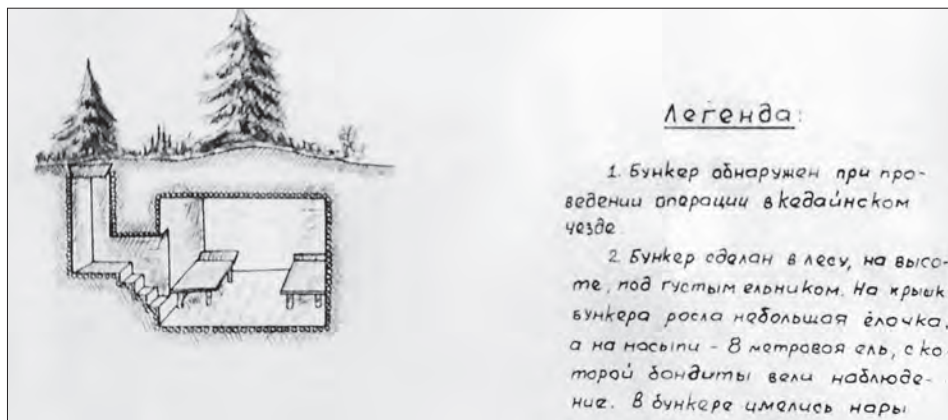 Легенда:
1. Бункер обнаружен при про-
ведении операции в кедайнском
уезде.
2. Бункер сделан в лесу, на высо-
те, под густым ельником. На крышк
бункера росла небольшая ёлочка,
а на насыпи - 8 метровая ель, с ко
торой бандиты вели наблюде-
ние. В бункере имелись нары